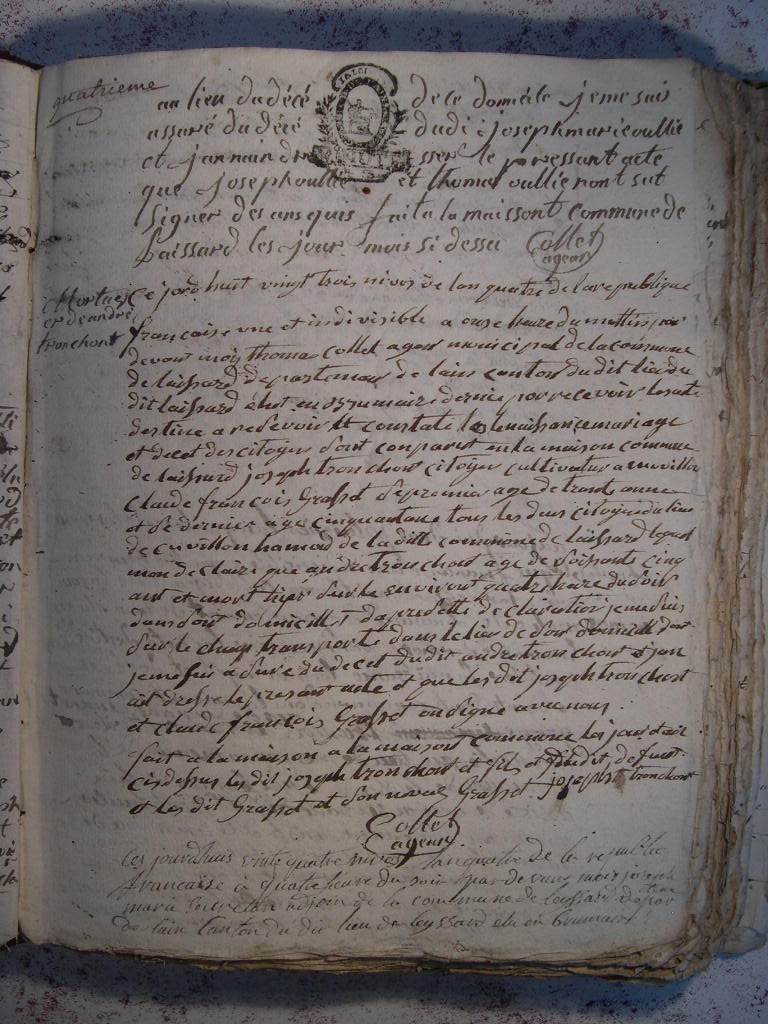 quatrieme
au lieu du décé de ce domécile je me suis
assuré du décé dudi joseph marie oullie
et jannaindre sser le pressant acte
que joseph oullie et thomas oullie nont sut
signer des ans quis fait a la maissont commune de
laissard les jour mois si dessu Collet
agean
Mortuer
er de andré
tronchont
Ce jord huit vingt trois nivos de lan quatre de la republique
francaise une et indivisible a onse heure du mattin par
devant moy thomas Collet agan municipal de la commune
de laissard departemans de lains canton du dit lieu du
dit laissard élut en brumaire dernié por recevoir les acte
destine a resevoir et constaté le naissance mariage
et decet des citoyens sont conparut en la maison commune
de laissard joseph tronchont citoyen cultivateur a cuvillon
Claude francois Grasset le premier age de trante anne
et le dernier age cinquante ans tous les deus citoyen du lieu
de cuvillon hamod de la ditte commune de laissard lequel
mon declaire que andre tronchont age de soissante cinq
ant et mort hier sur les environt quatre heure du soir
dans sont domicille et daprest sette declaration je me suis
sur le champ transporté dans le lieu de son domicille dont
je me suis asure du decet du dit andre tronchont et jan
ait dresse le present acte et que les dit joseph tronchont
et claude francois Grasset on signe avec nous
fait a la maison a la maisont commune les jour et an
cis dessus les dit joseph tronchont et fils et du dit defunt
et les dit Grasset et son neveu Grasset joseph tronchont
Collet
agean
Ces jourdhuis vinte quatre nivos lan quatre de la republic
francaise à quatre heure du soir par devant moi joseph
marie adjoin de la commune de leyssard depar
de lain canton du dit lieu de leyssard élu en brumaire